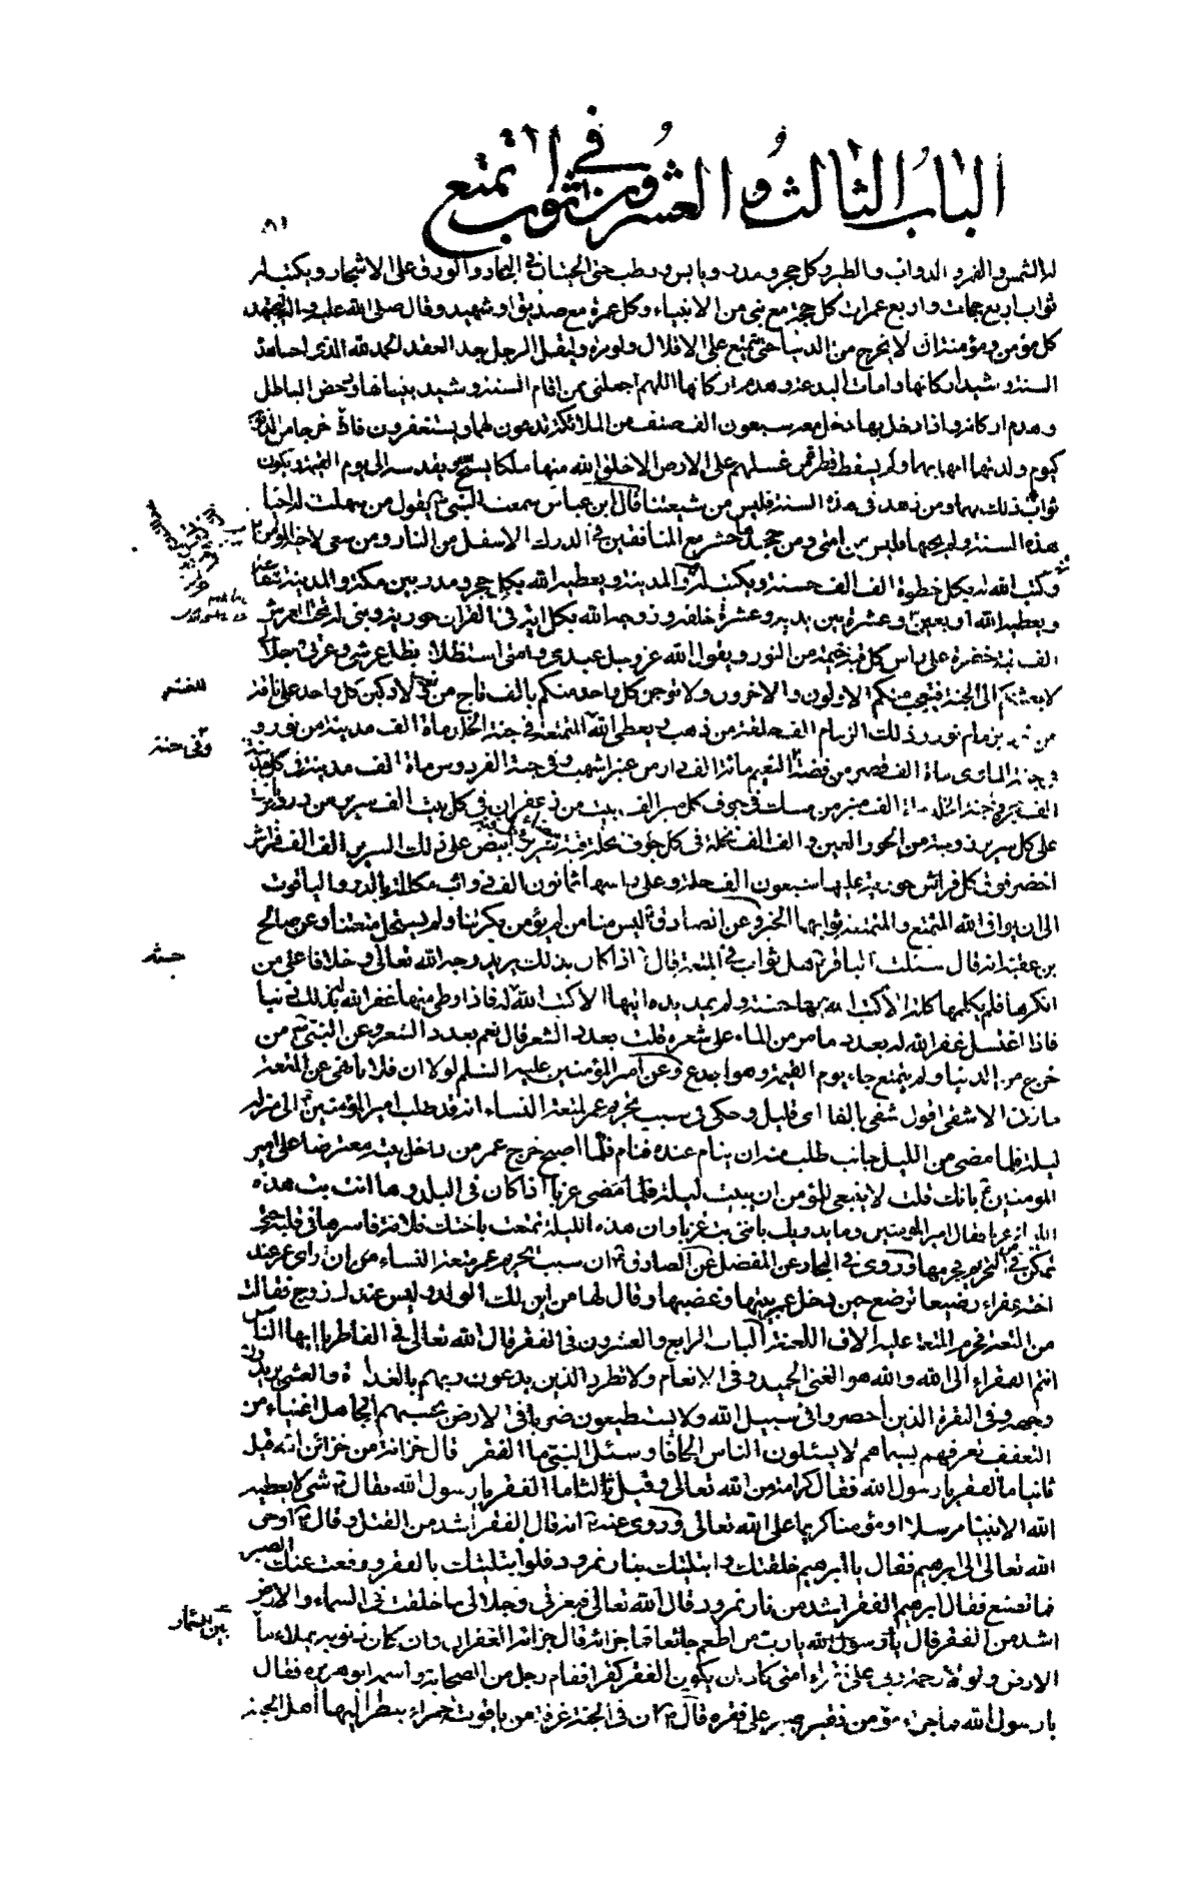 الباب الثالث والعشرون في ثواب تمتع
له الشمس والقمر والدواب والطير وكل حجر ومدر ويابس ورطب حتى الحيتان في البحار والورق على الاشجار ويكتب له
ثواب اربع حجات واربع عمرات كل حجة مع نبي من الانبياء وكل عمرة مع صديق او شهيد وقال صلى الله عليه وآله
كل مؤمن ومؤمنة ان لا يخرج من الدنيا حتى يتمتع على الاقلال ولو مرة وليقل الرجل بعد العقد الحمد لله الذي احيا هذه
السنة وشيد اركانها وامات البدعة وهدم اركانها اللهم اجعلني ممن اقام السنة وشيد بنيانها ودحض الباطل
وهدم اركانه واذا دخل بها دخل معه سبعون الف صنف من الملائكة يدعون لهما ويستغفرون فاذا خرجا من
كيوم ولدتهما امهما بهما ولم يسقط قطرة من غسلهم على الارض الا خلق الله منها ملكا يسبح ويقدسه الى يوم القيمة ويكون
ثواب ذلك بهما ومن زهد في هذه السنة فليس من شيعتنا قال ابن عباس سمعت النبي يقول من سهلت له احيا
هذه السنة ولم يحيها فليس من امتي ومن جحدها حشر مع المنافقين في الدرك الاسفل من النار ومن سعى لاخيه المؤمن
وكتب الله له بكل خطوة الف الف حسنة ويكتب له المدينة ويعطيه الله بكل حجر ومدر بين مكة والمدينة
ويعطيه الله اربعين وعشرة بين يديه وعشرة خلفه وزوجه الله بكل آية في القرآن حورية وبنى له تحت العرش
الف قبة خضرة على راس كل قبة خيمة من النور ويقول الله عز وجل عبدي وامتي استظلا بظل عرشي وعزتي وجلالي
لابعثنكم الى الجنة فيعجب منكم الاولون والآخرون ولاتوجن كل واحد منكم بالف تاج من ولاركبن كل واحد على ناقة
للختم
من زمام نور وذلك الزمام الف حلقة من ذهب ويعطى الله المتمتعة في جنة الخلد ماة الف مدينة من نور و
وفي جنة
جنة الماوى ماة الف قصر من فضة النعيم مائة الف دار من عنبر اشهب وفي جنة الفردوس ماة الف مدينة في كل
الف منبر من مسك في جوف كل منبر الف بيت من زعفران في كل بيت الف سرير من در
على كل سرير زوجة من الحور العين والف الف نخلة في كل جوف نخلة قبة ابيض على ذلك السرير الف الف فراش
اخضر فوق كل فراش حورية عليها سبعون الف حلة وعلى راسها ثمانون الف ذوائب مكللة بالدر والياقوت
الى ان يوافى الله المتمتع والمتمتعة ثوابهما الخبر وعن الصادق ليس منا من لم يؤمن بكرتنا ولم يستحل متعتنا وعن صالح
بن عقبة انه قال سئلت الباقر هل ثواب في المتعة قال اذا كان بذلك يريد وجه الله تعالى وخلافا على من
انكرها فلم يكلمها كلمة الا كتب الله بها حسنة ولم يمد يده اليها الا كتب الله له فاذا وطى منها غفر الله بذلك ذنبا
حسنة
فاذا اغتسل غفر الله له بعدد ما مر من الماء على شعره قلت بعدد الشعر قال نعم بعدد الشعر وعن النبي من
خرج من الدنيا ولم يتمتع جاء يوم القيمة وهو اجدع وعن امير المؤمنين عليه السلم لولا ان فلانا نهى عن المتعة
ما زنى الا شفى اقول شفى بالفا اى قليل وحكى في سبب تحريم عمر لمتعة النساء انه قد طلب امير المؤمنين الى منزله
ليلة فلما مضى من الليل جانب طلب منه ان ينام عنده فنام فلما اصبح خرج عمر من داخل بيته معترضا على امير
المومنين بانك قلت لا ينبغي للمؤمن ان يبيت ليلة عزبا اذا كان في البلد وها انت بت هذه
الليلة عزبا فقال امير المومنين وما يدريك بانني بت عزبا وان هذه الليلة تمتعت باختك فلانة فاسرها في قلبه حتى
تمكن من التحريم فحرمها وروى في البحار عن المفضل عن الصادق ان سبب تحريم عمر متعة النساء هي ان راى عمر عند
اخته عفراء رضيعا ترضع حين دخل عمر بيتها وغضبها وقال لها من اين لك الولد وليس عندك زوج فقالت
من المتعة فحرم المتعة عليه الاف اللعنة الباب الرابع والعشرون في الفقر قال الله تعالى في الفاطر يا ايها الناس
انتم الفقراء الى الله والله هو الغني الحميد وفي الانعام ولا تطرد الذين يدعون ربهم بالغداة والعشي يريدون
وجهه وفي البقرة الذين احصروا في سبيل الله ولا يستطيعون ضربا في الارض يحسبهم الجاهل اغنياء من
التعفف تعرفهم بسيماهم لا يسئلون الناس الحافا وسئل النبي ما الفقر قال خزانة من خزائن الله قيل
ثانيا ما الفقر يا رسول الله فقال كرامة من الله تعالى وقيل ثالثا ما الفقر يا رسول الله فقال شيء لا يعطيه
الله الا نبيا مرسلا او مؤمنا كريما على الله تعالى وروى عنه انه قال الفقر اشد من القتل وقال اوحى
الله تعالى الى ابرهيم فقال يا ابرهيم خلقتك وابتليتك بنار نمرود فلو ابتليتك بالفقر ورفعت عنك الصبر
فما تصنع فقال ابرهيم الفقر اشد من نار نمرود قال الله تعالى فبعزتي وجلالي ما خلقت في السماء والارض
اشد من الفقر قال يا رب من اطعم جائعا فما جزائه قال جزائه الغفران وان كان ذنوبه يملاء بين السماء
الارض ولولا رحمة ربي على فقراء امتي كاد ان يكون الفقر كفرا فقام رجل من الصحابة واسمه ابو هريرة فقال
يا رسول الله ما جزاء مؤمن فقير يصبر على فقره قال ان في الجنة غرفة من ياقوتة حمراء ينظر اليها اهل الجنة